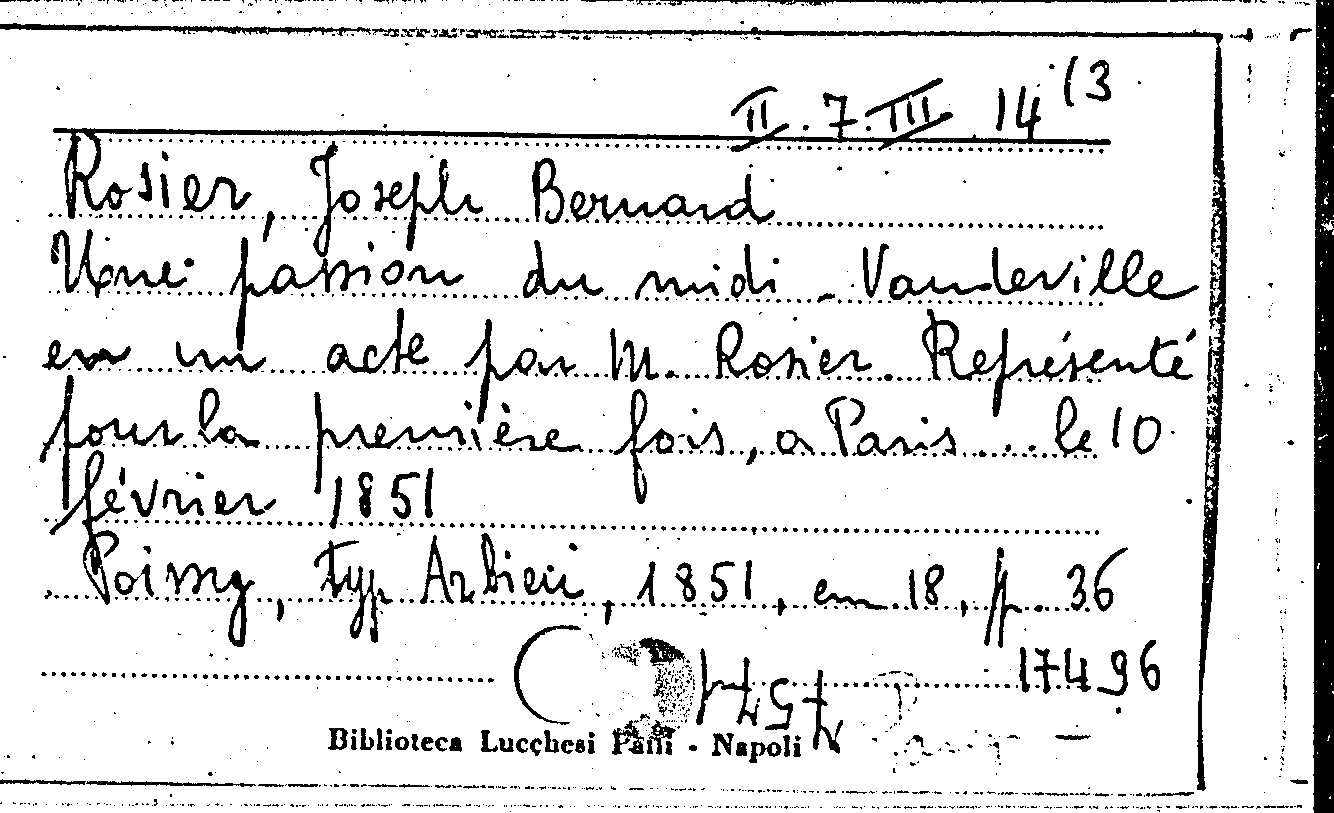 II. 7. III 14 (3
Rosier, Joseph Bernard
Une passion du midi - Vaudeville
en un acte par M. Rosier. Représenté
pour la première fois, a Paris ... le 10
février 1851
Poissy, typ Arbieu, 1851, em 18, p. 36
17496
Biblioteca Lucchesi Palli - Napoli